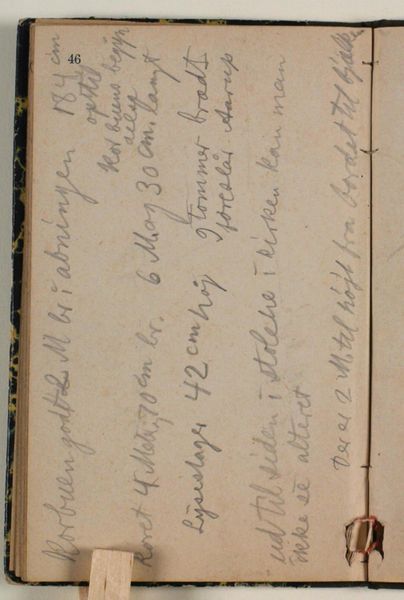 46
Korbuen godt 2 M br i åbningen 184 cm
op til
Korbuens begyn
delse
Koret 4 Met, 70 cm br. 6 M og 30 cm. langt
Lysestager 42 cm høj 9 tommer bredt
foreslår Aarup
ud til siden i stolene i kirken kan man
ikke se alteret
Der er 2 M. til højt fra bordet til bjælke